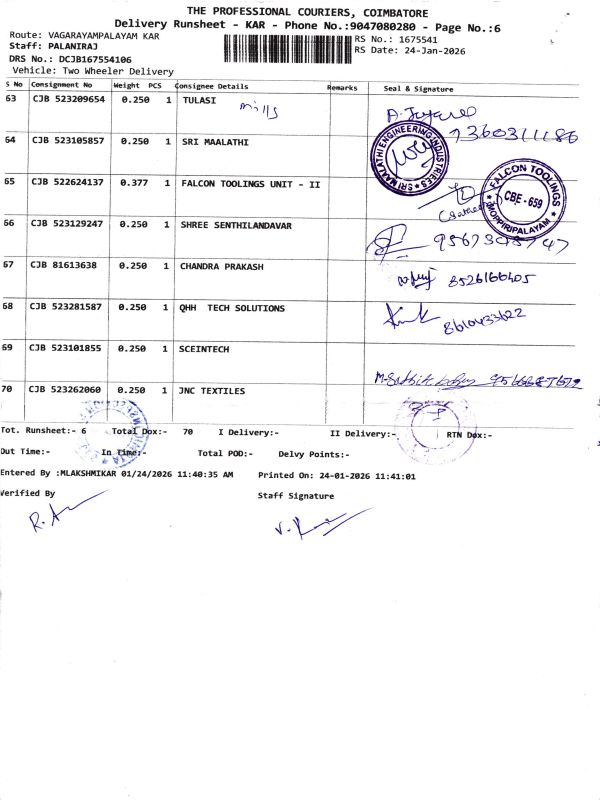 THE PROFESSIONAL COURIERS, COIMBATORE
Delivery Runsheet - KAR - Phone No.:9047080280 - Page No.:6
Route: VAGARAYAMPALAYAM KAR
RS No.: 1675541
Staff: PALANIRAJ
RS Date: 24-Jan-2026
DRS No.: DCJB167554106
Vehicle: Two Wheeler Delivery
S No Consignment No Weight PCS Consignee Details Remarks Seal & Signature
63 CJB 523209654 0.250 1 TULASI mills
7360311186
64 CJB 523105857 0.250 1 SRI MAALATHI
SRI MAALATHI ENGINEERING INDUSTRIES
65 CJB 522624137 0.377 1 FALCON TOOLINGS UNIT - II
FALCON TOOLINGS
CBE - 659
MOPPIRIPALAYAM
66 CJB 523129247 0.250 1 SHREE SENTHILANDAVAR
67 CJB 81613638 0.250 1 CHANDRA PRAKASH
8526166405
68 CJB 523281587 0.250 1 QHH TECH SOLUTIONS
8610433622
69 CJB 523101855 0.250 1 SCEINTECH
70 CJB 523262060 0.250 1 JNC TEXTILES
Tot. Runsheet:- 6 Total Dox:- 70 I Delivery:- II Delivery:- RTN Dox:-
Out Time:- In Time:- Total POD:- Delvy Points:-
Entered By :MLAKSHMIKAR 01/24/2026 11:40:35 AM Printed On: 24-01-2026 11:41:01
Verified By
Staff Signature